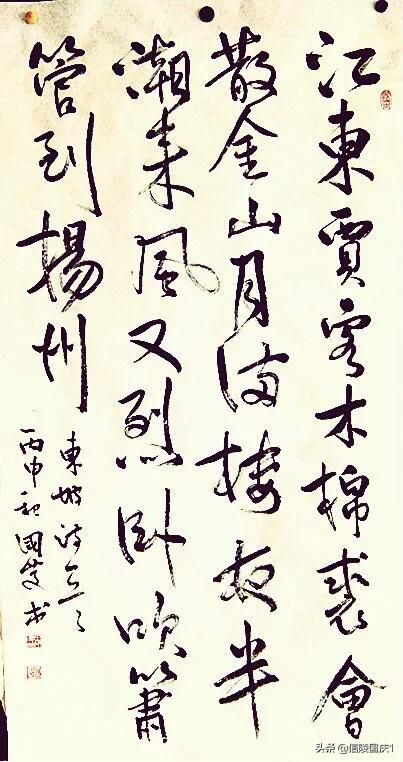 江東賈客木棉裘會
散金山月满楼夜半
潮来風又烈卧吹簫
管到揚州
東坡诗
丙申 國慶书
头条 @信陵国庆1